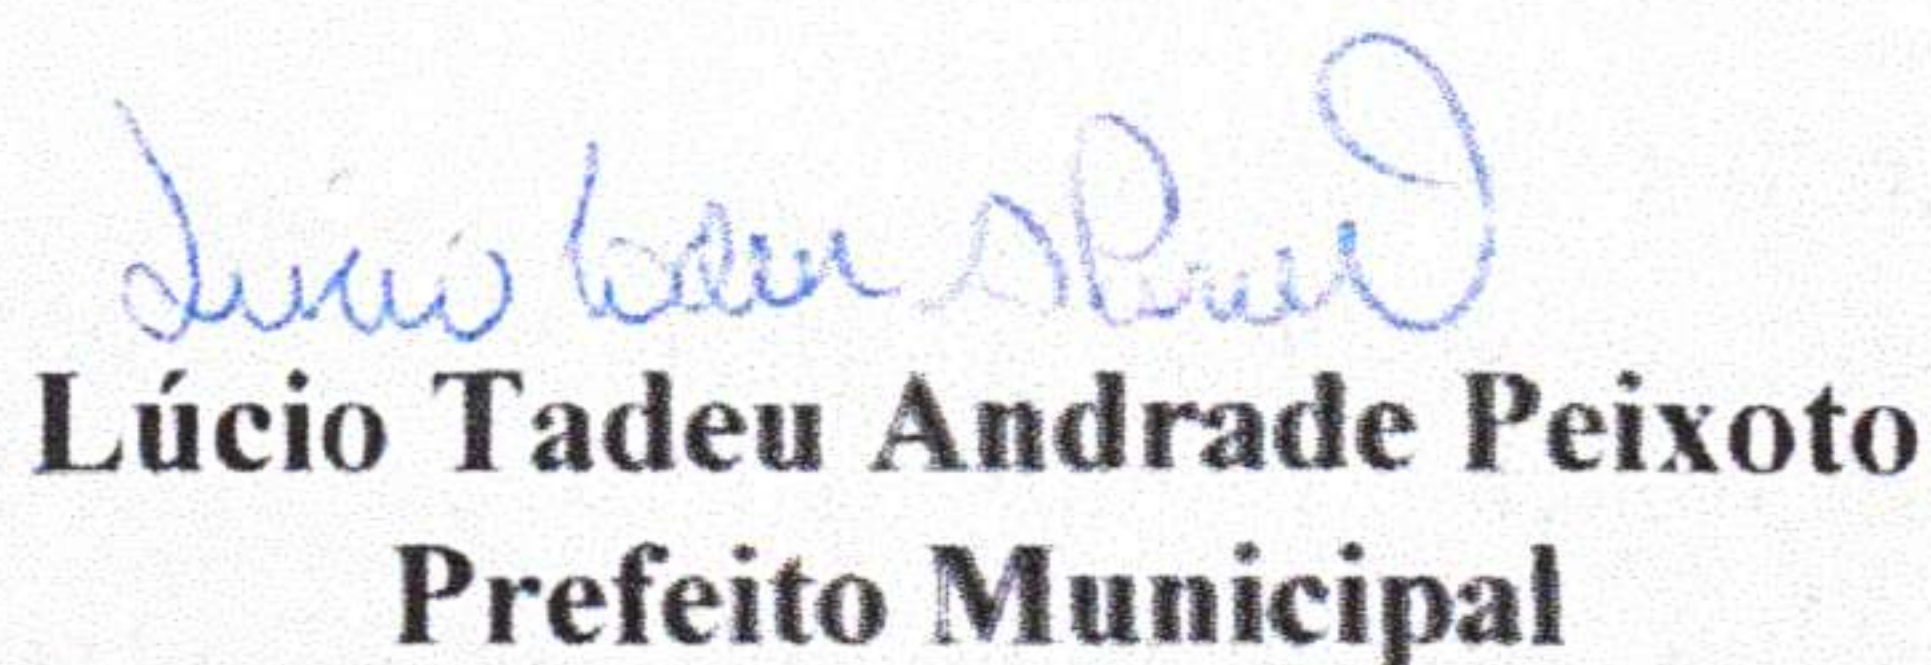 Lúcio Tadeu Andrade Peixoto
Prefeito Municipal